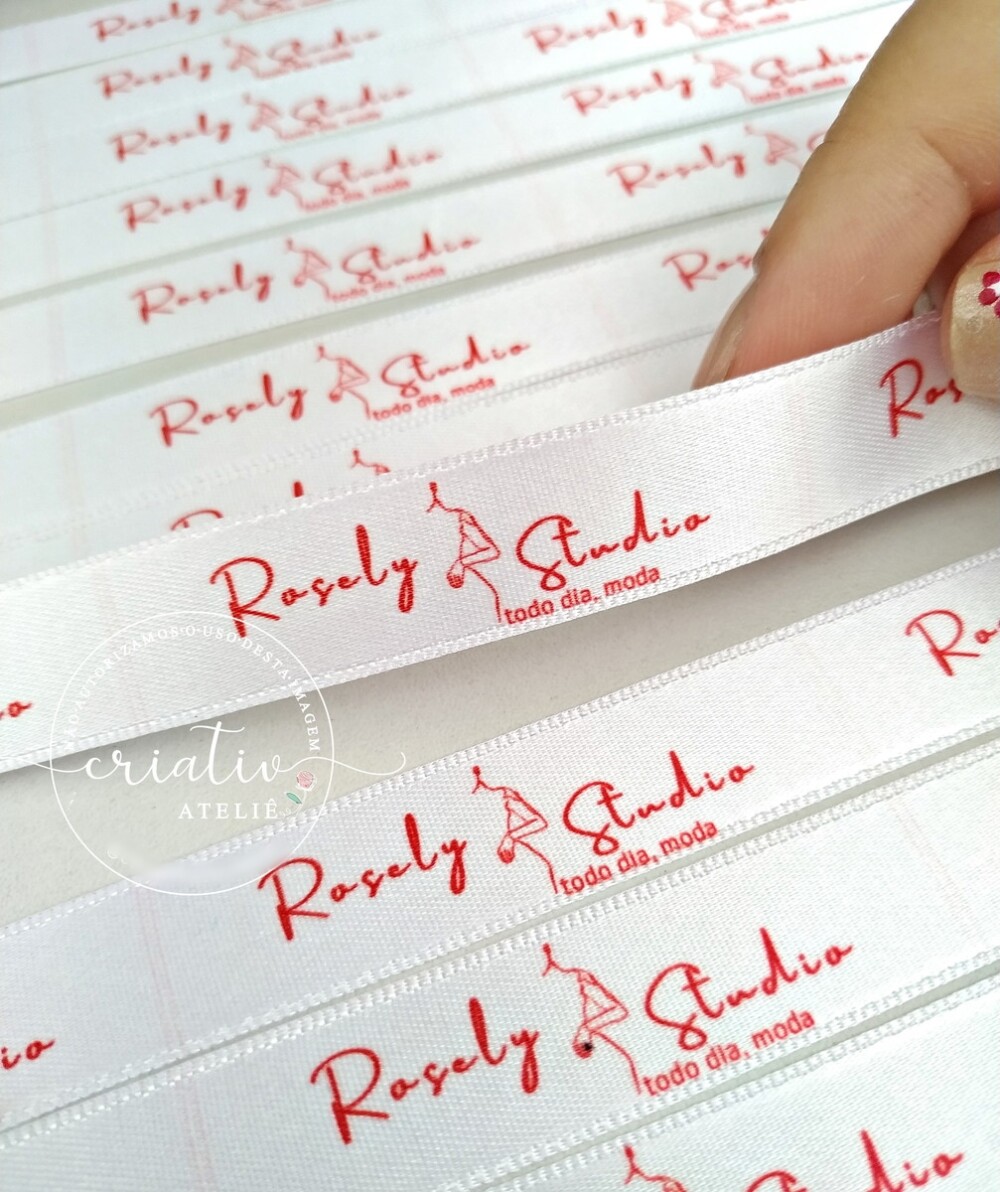 Rosely Studio
Rosely Studio
Rosely Studio
todo dia, moda
Rosely Studio
todo dia, moda
Rosely Studio
todo dia, moda
Rosely
Rosely Studio
todo dia, moda
Rosely
Rosely Studio
todo dia, moda
Rosely Studio
todo dia, moda
NÃO AUTORIZAMOS O USO DESTA IMAGEM
criativ
ATELIÊ
Rosely Studio
todo dia, moda
Rosely Studio
todo dia, moda